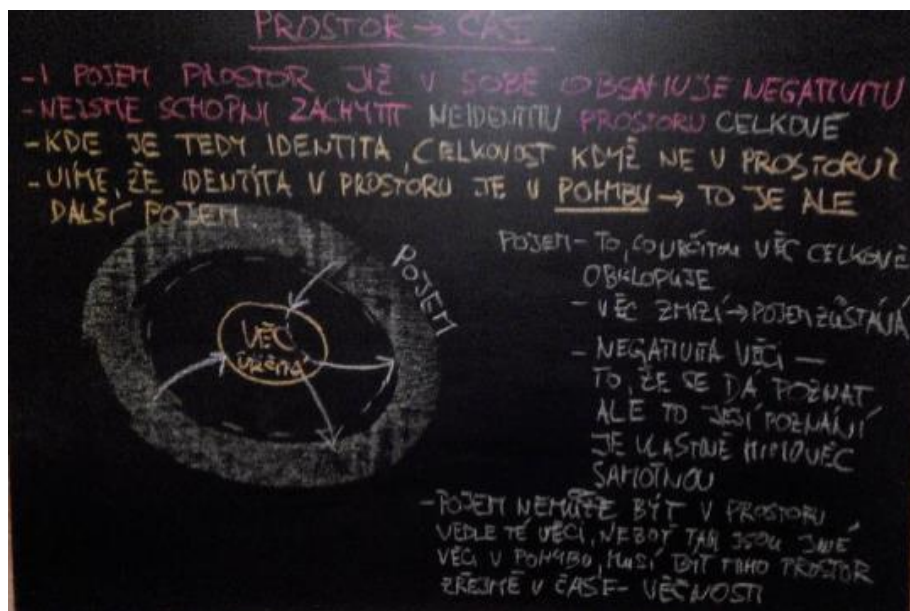 PROSTOR → ČAS
- I POJEM PROSTOR JIŽ V SOBĚ OBSAHUJE NEGATIVITU
- NEJSME SCHOPNÍ ZACHYTIT NEIDENTITU PROSTORU CELKOVĚ
- KDE JE TEDY IDENTITA, CELKOVOST KDYŽ NE V PROSTORU?
- VÍME, ŽE IDENTITA V PROSTORU JE V POHYBU → TO JE ALE
DALŠÍ POJEM
POJEM
VĚC
POJEM - TO, CO URČITOU VĚC CELKOVĚ
OBKLOPUJE
- VĚC ZMIZÍ → POJEM ZŮSTÁVÁ
- NEGATIVITA VĚCI —
TO, ŽE SE DÁ POZNAT
ALE TO JEJÍ POZNÁNÍ
JE VLASTNĚ MIMO VĚC
SAMOTNOU
- POJEM NEMŮŽE BÝT V PROSTORU
VEDLE TÉ VĚCI, NEBOŤ TAM JSOU JINÉ
VĚCI V POHYBU, MUSÍ BÝT MIMO PROSTOR
ZŘEJMĚ V ČASE - VĚČNOSTI